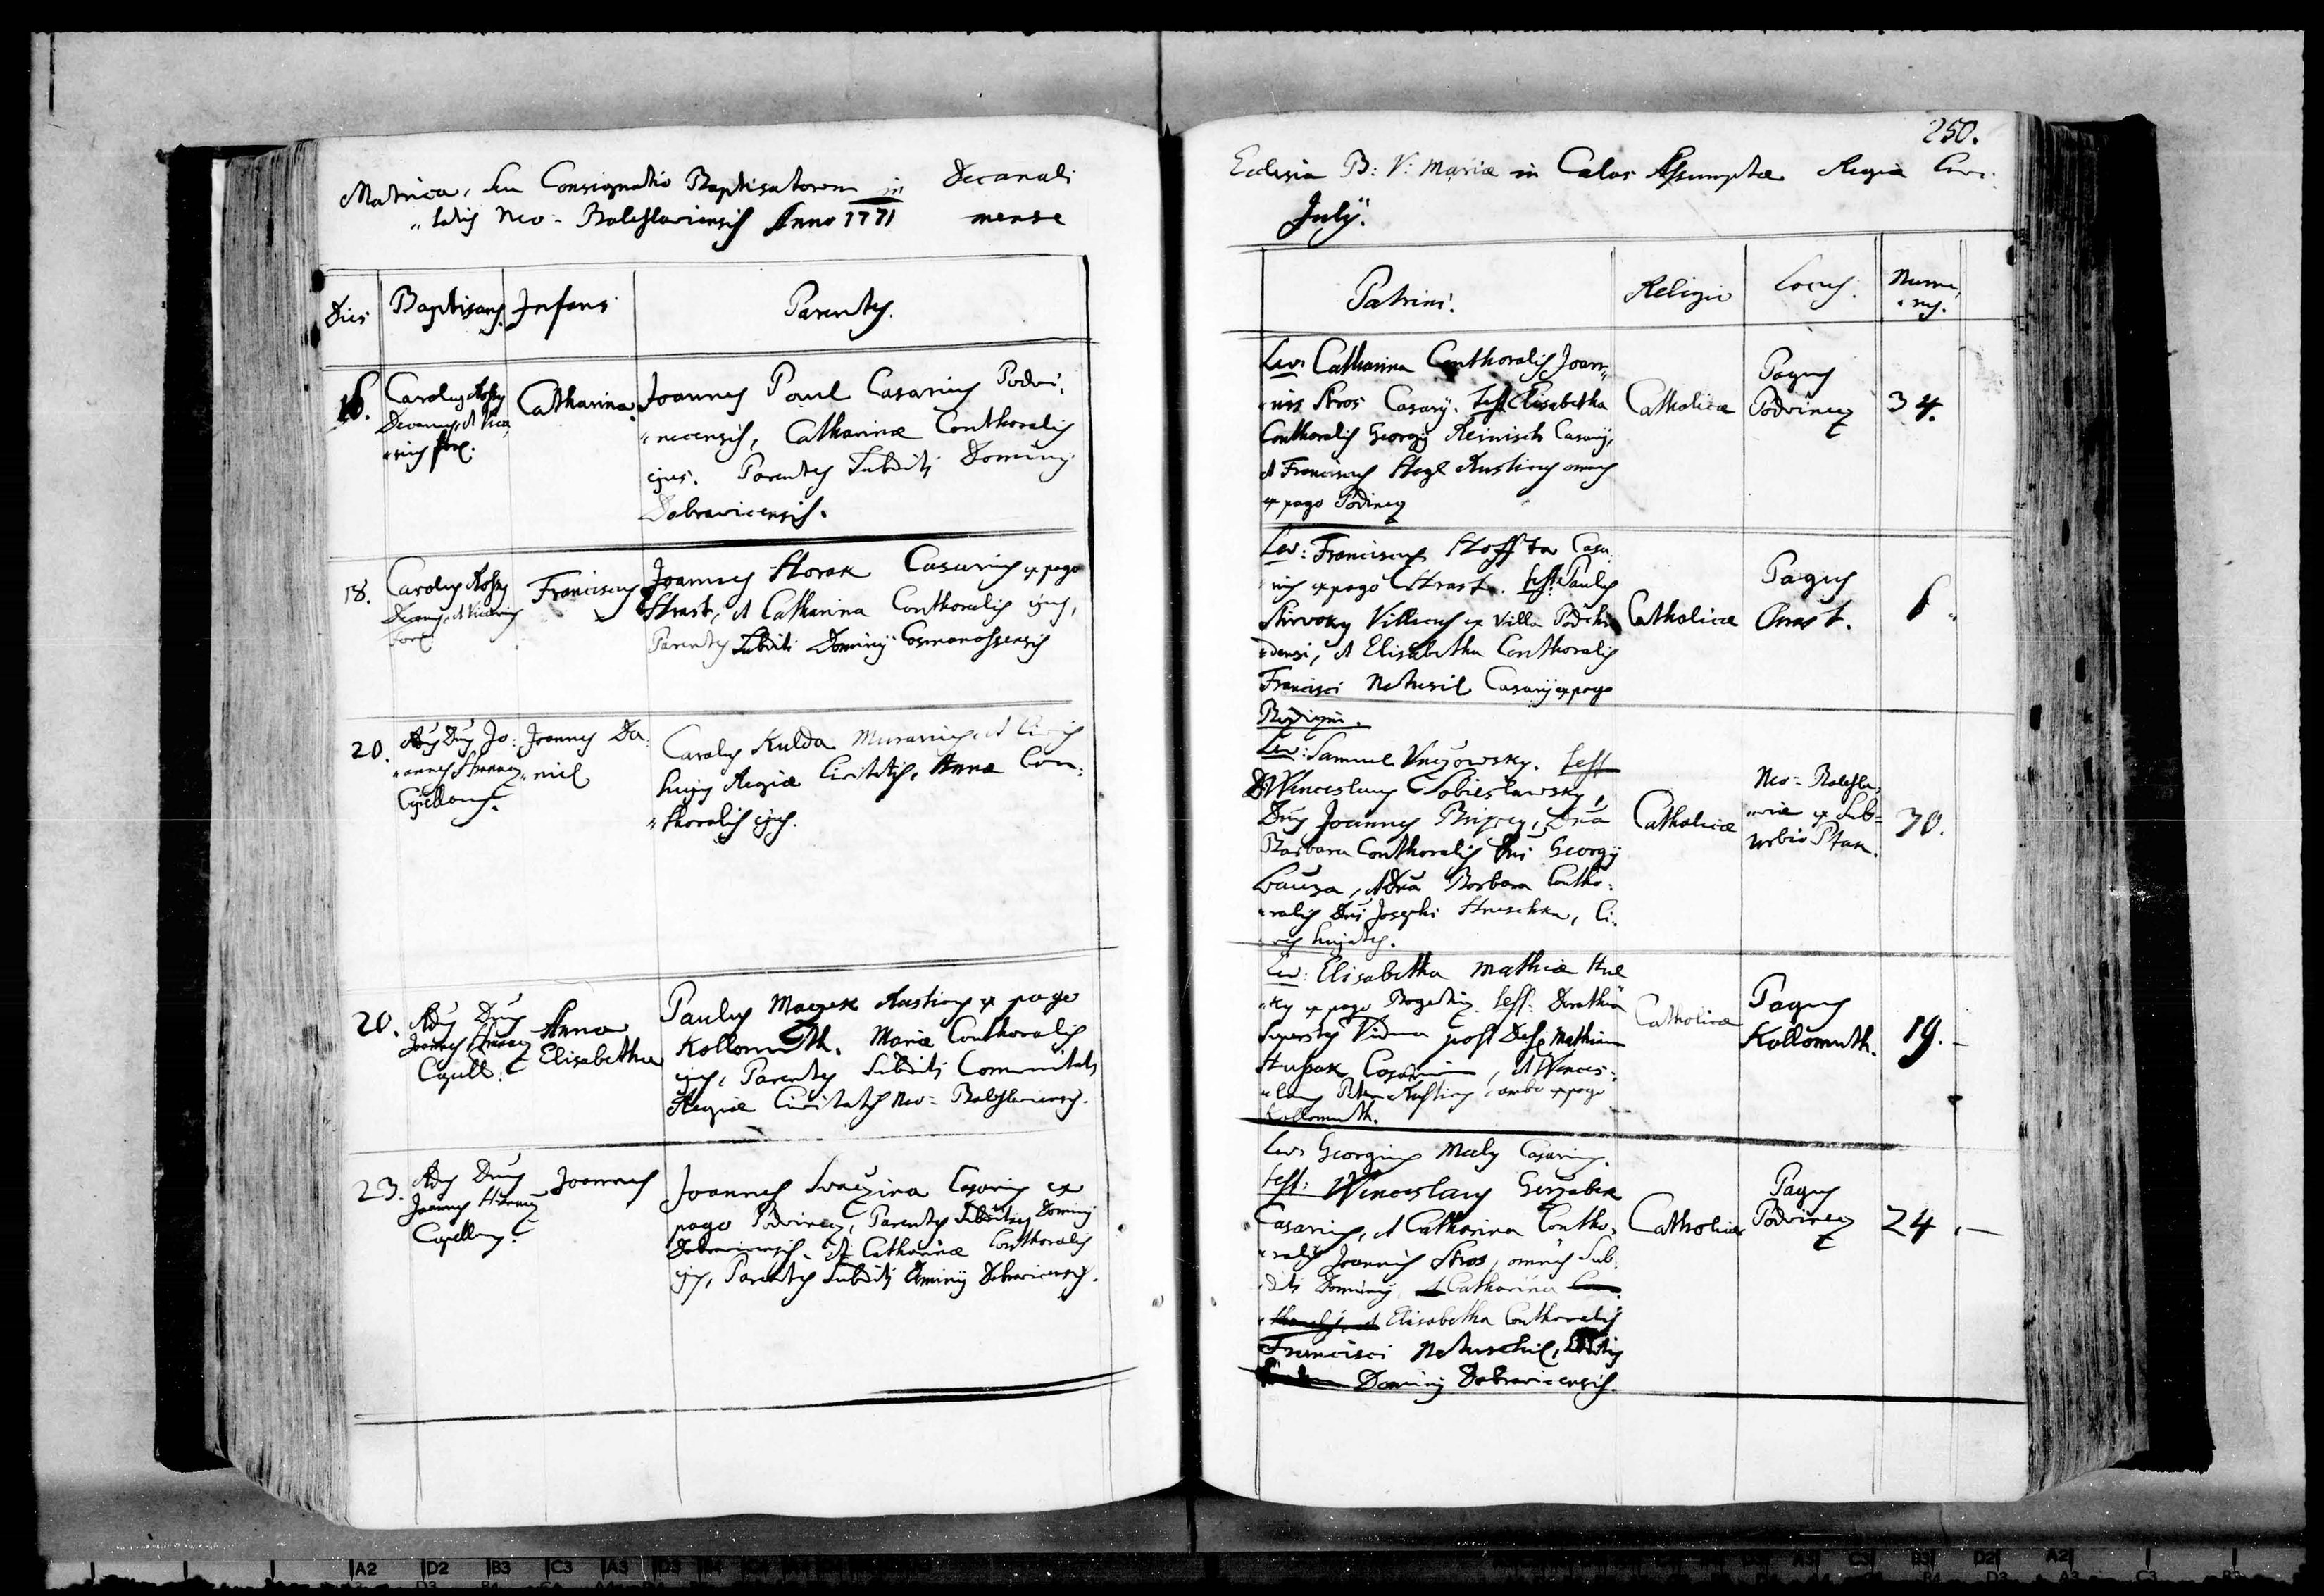 Matrica, seu Consignatio Baptisatorum in Decanali
"tatis Neo-Boleslaviensis Anno 1771 mense
Dies Baptisans Infans Parentes.
16. Carolus
Decanus, et Vica
"rius for:
Catharina
Joannes Paul Casarius Podvi:
"necensis, Catharinæ Conthoralis
ejus. Parentes Subditi Dominii
Dobrovicensis.
18. Carolus
Decanus, et Vicarius
for:
Franciscus
Joannes Horak Casarius ex pago
Chrast, et Catharina Conthoralis ejus,
Parentes Subditi Dominii Cosmanossensis
20. Adm Dnus Jo:
"annes
Capellanus.
Joannes Da:
"niel
Carolus Kulda Murarius, et Civis
hujus Regiæ Civitatis, Anna Con:
"thoralis ejus.
20. Adm Dnus
Joannes
Capell:
Anna
Elisabetha
Paulus Maczek Rusticus ex pago
Kollomuth. Maria Conthoralis
ejus, Parentes Subditi Communitatis
Regiæ Civitatis Neo-Boleslaviensis.
23. Adm Dnus
Joannes
Capellanus.
Joannes
Joannes Svaczina Casarius ex
pago Podvinecz, Parentes Subditus Dominii
Dobrovicensis. et Catharinæ Conthoralis
ejus, Parentes Subditi Dominii Dobrovicensis.
250.
Ecclesia B: V: Mariæ in Cælos Assumptæ Regiæ Civi:
July.
Patrini. Religio Locus. Nume:
"rus.
Lev: Catharina Conthoralis Joan:
"nis Stros Casarij. Test: Elisabetha
Conthoralis Georgij Reinisch Casarij,
et Franciscus Stegl Rusticus omnes
ex pago Podvinecz
Catholicæ
Pagus
Podvinecz
34.
Lev: Franciscus Casa:
"rius ex pago Chrast. Test: Paulus
Villicus ex Villa
"densi, et Elisabetha Conthoralis
Francisci Netusil Casarij ex pago
Catholicæ
Pagus
Chrast.
6.
Lev: Samuel Test
D: Wenceslaus Sobieslawsky,
Dnus Joannes Dna
Barbara Conthoralis Dni Georgij
et Dna Barbara Contho:
"ralis Dni Josephi Hruschka, Ci:
"ves hujates.
Catholicæ
Neo-Boleslа:
"viæ ex Sub=
urbio Ptak.
30.
Lev: Elisabetha Mathiæ
"ky ex pago Test: Dorothea
Superstes Vidua post Def: Mathiam
Casarium, et Wences:
"laus Peter Rusticus, ambo ex pago
Kollomuth.
Catholicæ
Pagus
Kollomuth.
19.
Lev: Georgius Maly Casarius.
Test: Wenceslaus Gerzabek
Casarius, et Catharina Contho:
"ralis Joannis Stros, omnes Sub:
"diti Dominii et Catharina
Elisabetha Conthoralis
Francisci Netuschil,
Dominij Dobrovicensis.
Catholicæ
Pagus
Podvinecz
24.
A2 D2 B3 C3 A3